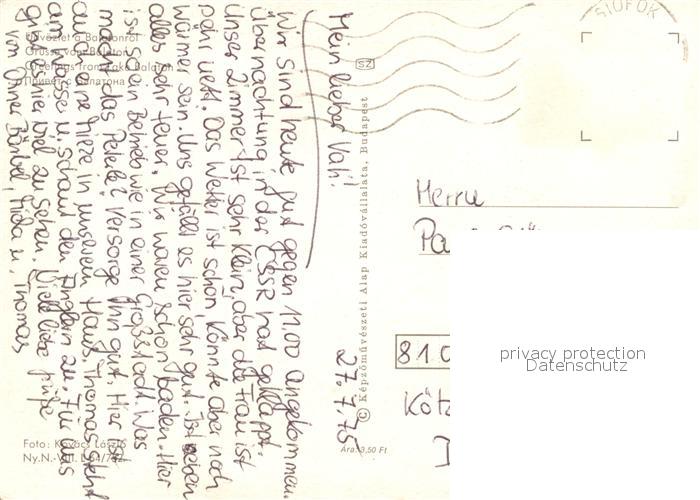 SIOFOK
SZ
Üdvözlet a Balatonról
Grüsse vom Balaton
Greetings from Lake Balaton
Привет с Балатона
Mein lieber Vati!
27.7.75
Wir sind heute gut gegen 11.00 angekommen.
Übernachtung in der ČSSR hat geklappt.
Unser Zimmer ist sehr klein, aber die Frau ist
sehr nett. Das Wetter ist schön, könnte aber noch
wärmer sein. Uns gefällt es hier sehr gut. Ist eben
alles sehr teuer. Wir waren schon baden. Hier
ist so ein Betrieb wie in einer Großstadt. Was
macht das Peterle? Versorge ihn gut. Hier ist
auch eine Mieze in unserem Haus. Thomas steht
am Wasser u. schaut den Anglern zu. Für uns
gibt es hier viel zu sehen. Viele liebe Grüße
von Deiner Bärbel, Frida u. Thomas
© Képzőművészeti Alap Kiadóvállalata, Budapest
Herrn
810
privacy protection
Datenschutz
Foto: Kovács László
Ára: 3,50 Ft